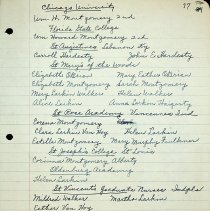 Chicago University 77
Wm H. Montgomery 2nd
Florida State College
Wm Howard Montgomery 2nd
St Augustines Lebanon Ky
Carroll Hardesty John E Hardesty
St Marys of the Woods
Elizabeth OBrien Mary Esther OBrien
Elizabeth Montgomery Sarah Montgomery
Mary Larkin Walker Helen Walker
Alice Larkin Anna Larkin Hagerty
St Rose Academy Vincennes Ind
Rosena Montgomery
Clara Larkin Van Hoy Helen Larkin
Estelle Montgomery Mary Murphy Faulkner
St Josephs College St Louis
Corinnus Montgomery Alberts
Oldenburg Academy
Helen Larkin
St Vincents Graduate Nurses Indpls
Mildred Walker Martha Larkin
Esther Van Hoy